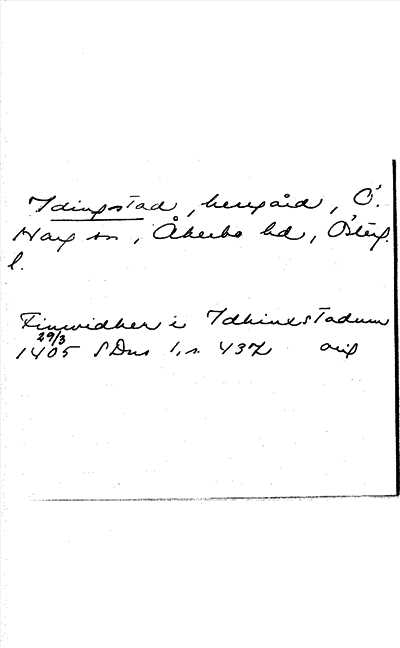 Idingstad, herrgård, Ö.
Harg sn, Åkerbo hd, Österg.
l.
Finwidher i Idhinxstadum
29/3
1405 SDns 1, s. 437 orig